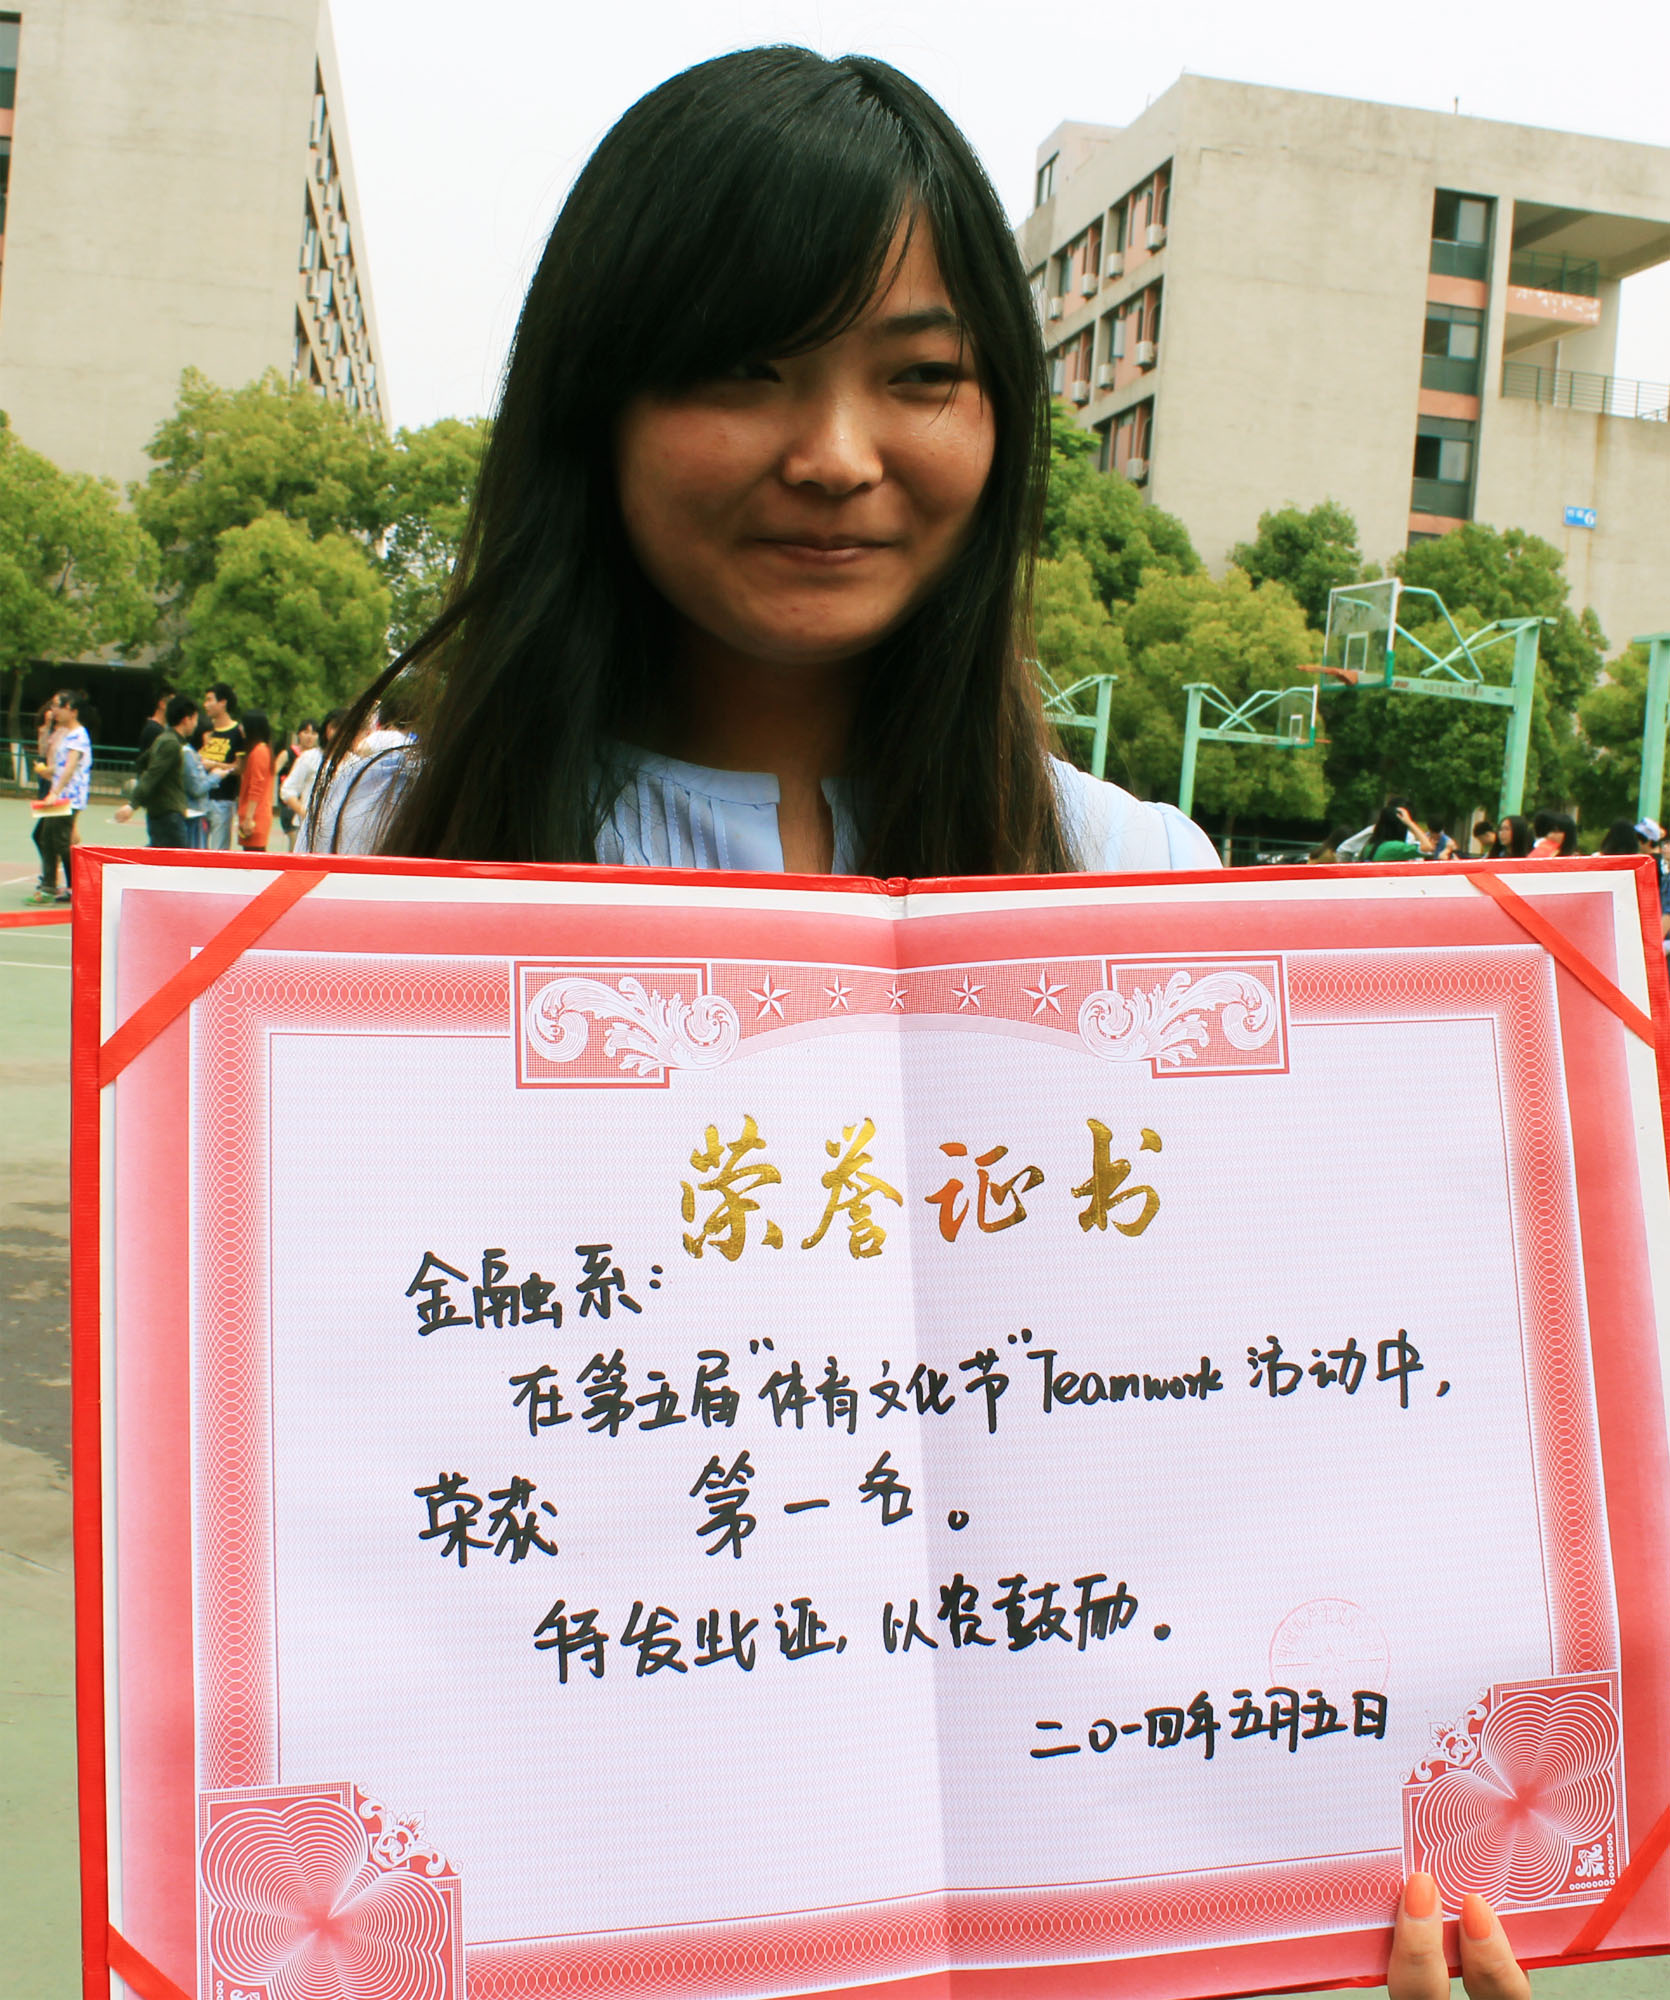 荣誉证书
金融系：
在第五届“体育文化节”Teamwork活动中，
荣获 第一名。
特发此证，以资鼓励。
二〇一四年五月五日
6